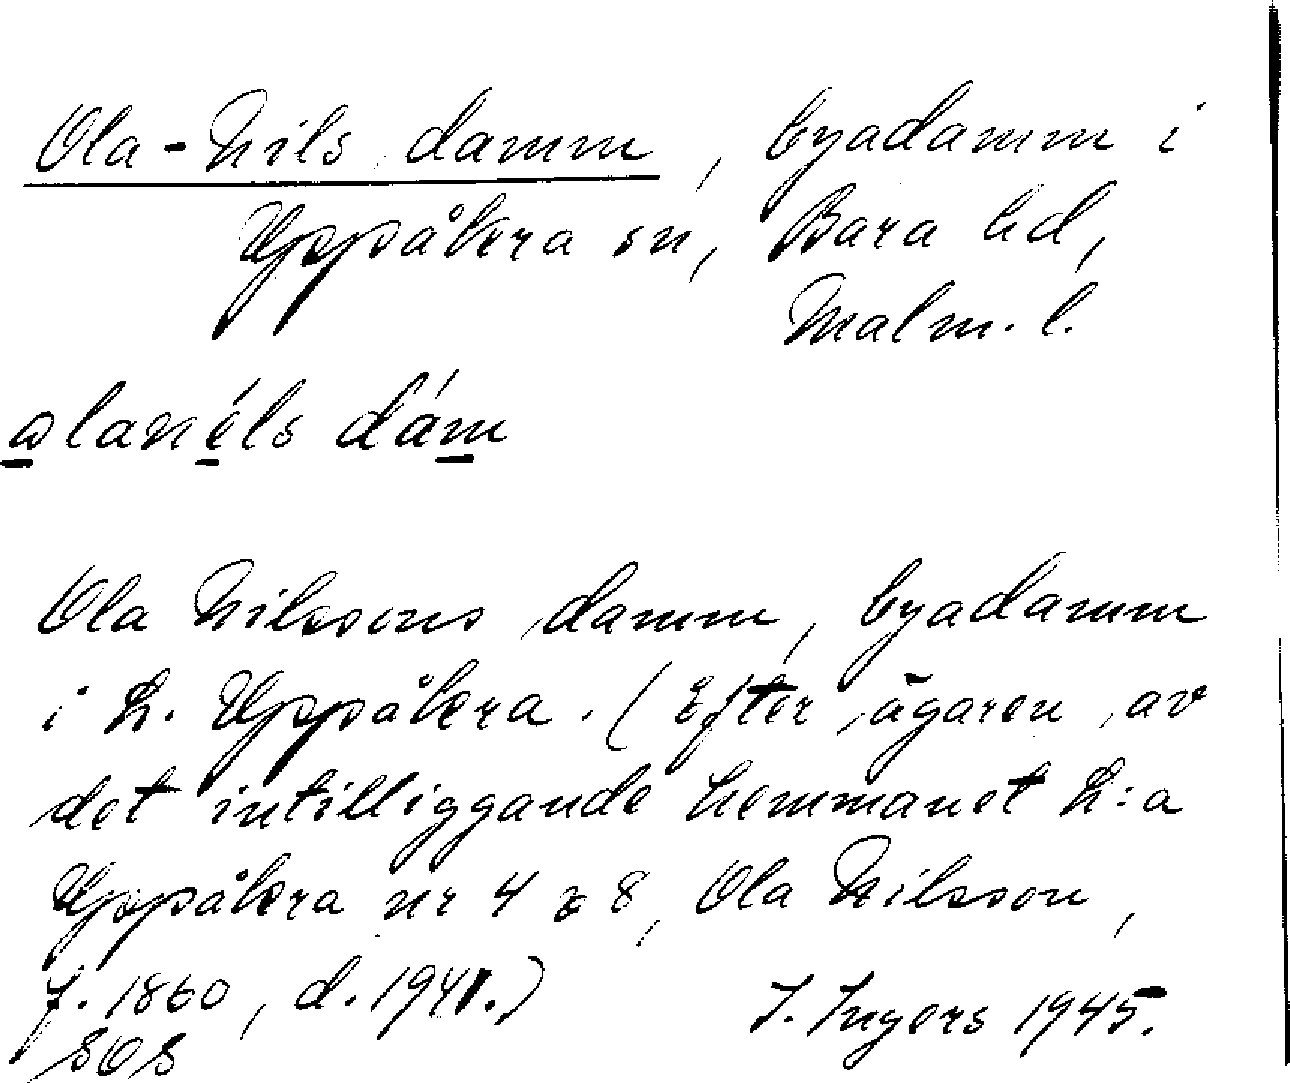 Ola-Nils damm, byadamm i
Uppåkra sn, Bara hd,
Malm. l.
dám
Ola Nilssons damm, byadamm
i L. Uppåkra. (Efter ägaren av
det intilliggande hemmanet L:a
Uppåkra nr 4 & 8, Ola Nilsson,
f. 1860, d. 1941.)
I. Ingers 1945.
SOS